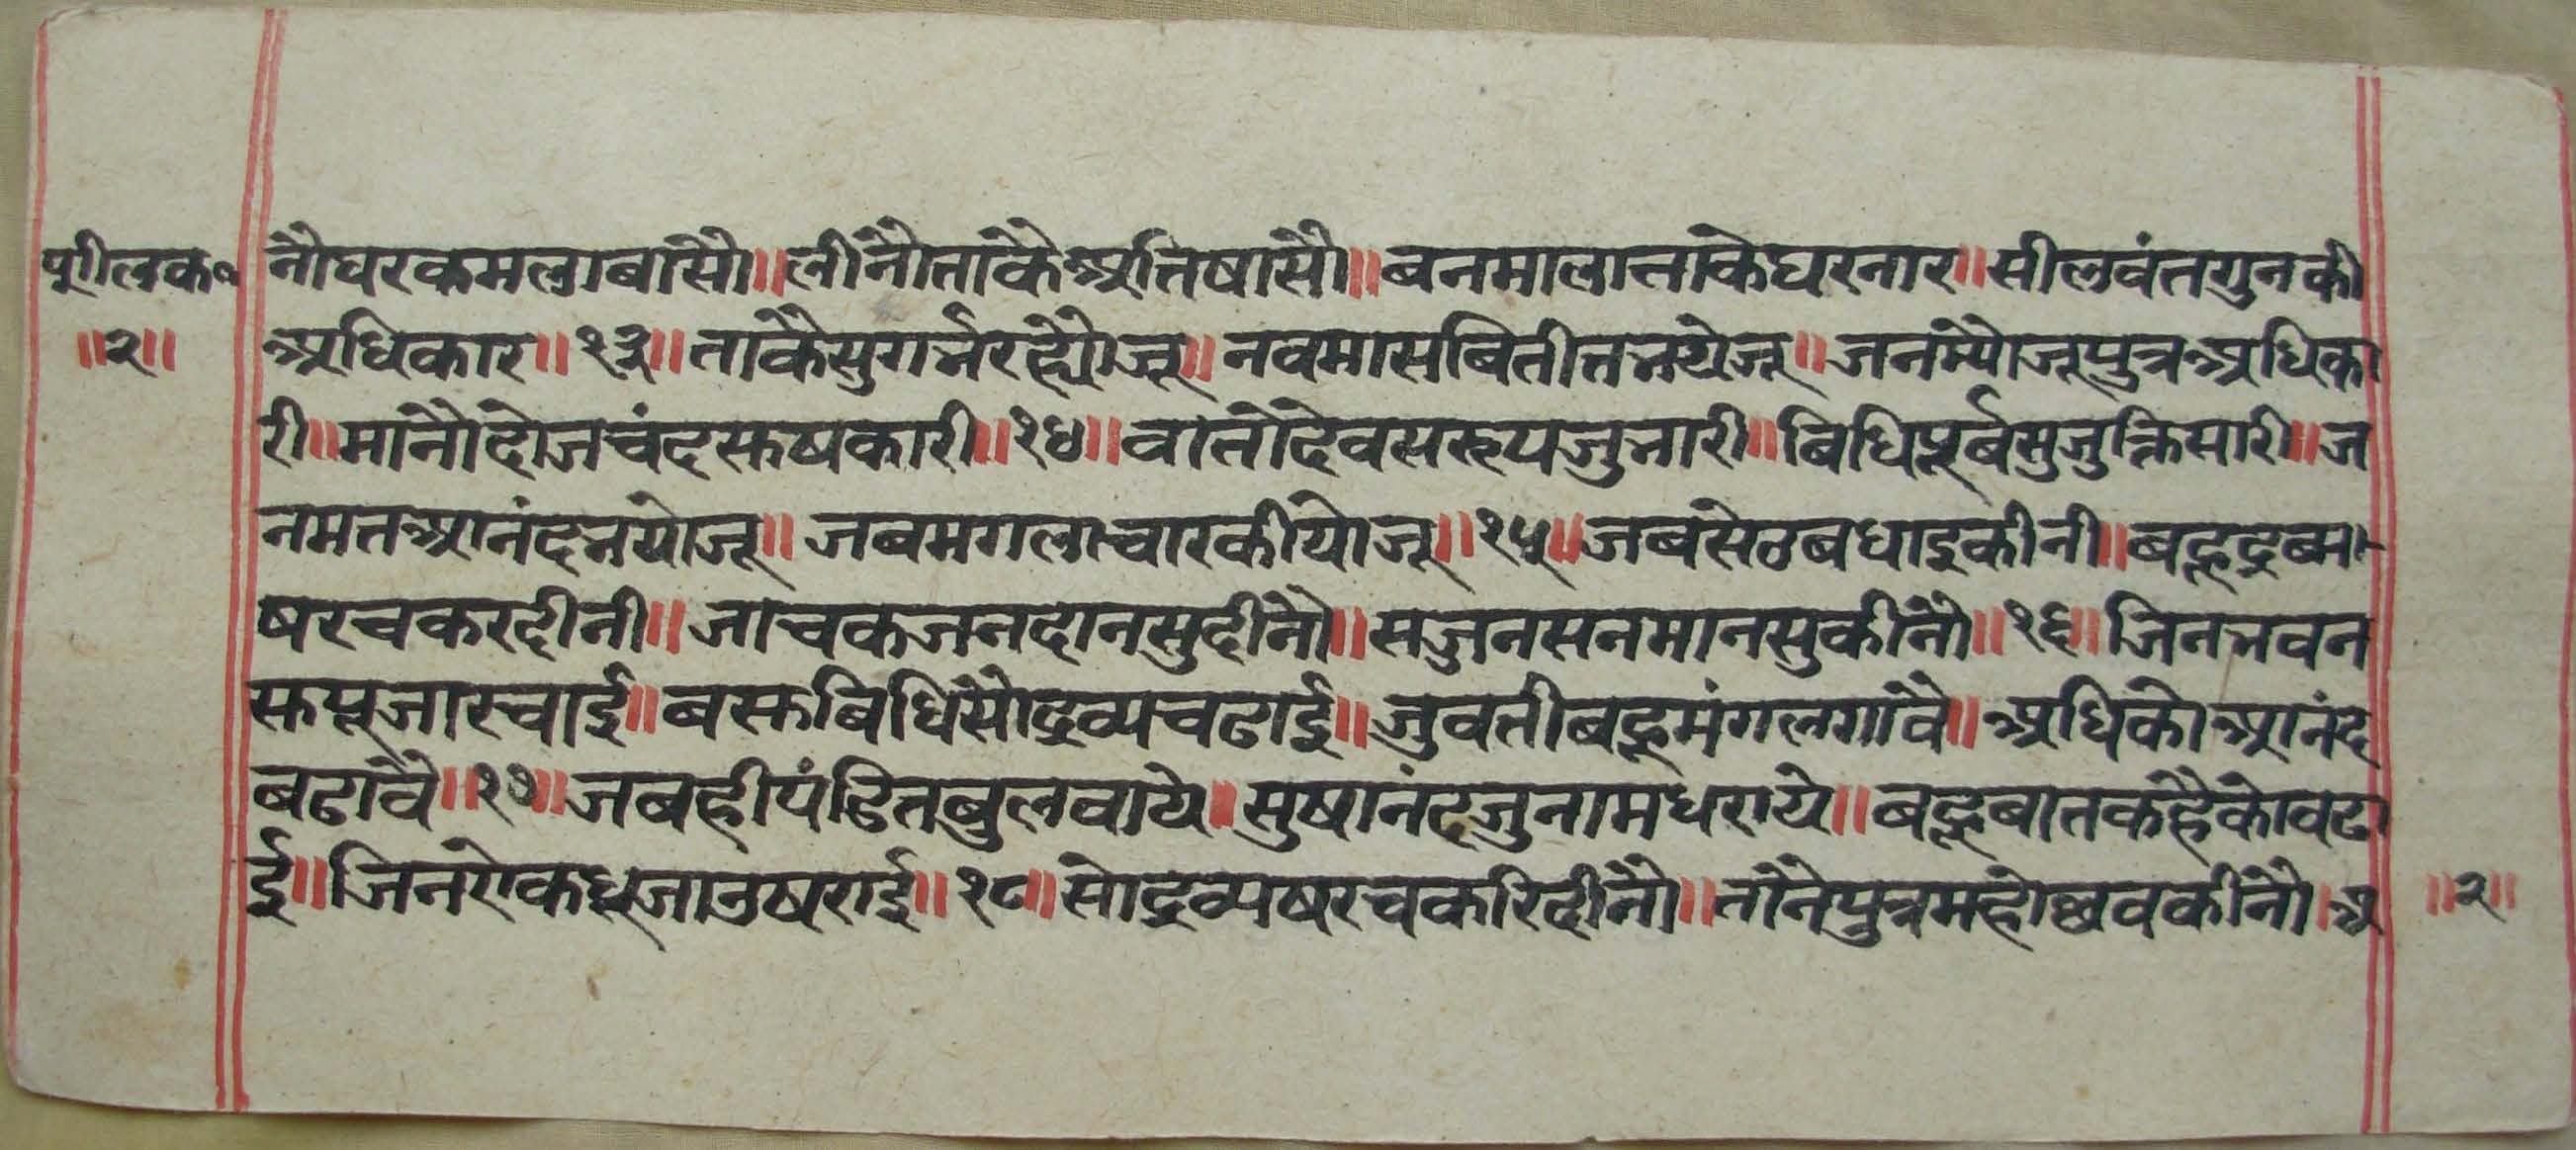 शीलक०
॥२॥
नौघरकमलाबासौ॥लीनौताकैअतिषासौ॥बनमालाताकेघरनार॥सीलवंतगुनकी
अधिकार॥१३॥ताकैसुगर्भरह्यौजू॥नवमासबितीतभयेजू॥जनंम्यौजूपुत्रअधिका
री॥मानौदोजचंदसुषकारी॥१४॥वातोदेवसरूपजुभारी॥बिधिपूर्बसुजुक्तिसारी॥ज
नमतआनंदभयोजू॥जबमगलाचारकीयोजू॥१५॥जबसेठबधाइकीनी॥बहूद्रब्य
षरचकरदीनी॥जाचकजनदानसुदीनौ॥सजुनसनमानसुकीनौ॥१६॥जिनभवन
सुपूजारचाई॥बसुबिधिसौद्रव्यचढाई॥जुवतीबहूमंगलगावै॥अधिकोआनंद
बढावै॥१७॥जबहीपंडितबुलवाये॥सुषानंदजुनामधराये॥बहूबातकहैकोवढा
ई॥जिनऐकधूजाउषराई॥१८॥सोद्रव्यषरचकरिदीनौ॥तौनेपुत्रमहोछवकीनौ।अ
॥२॥